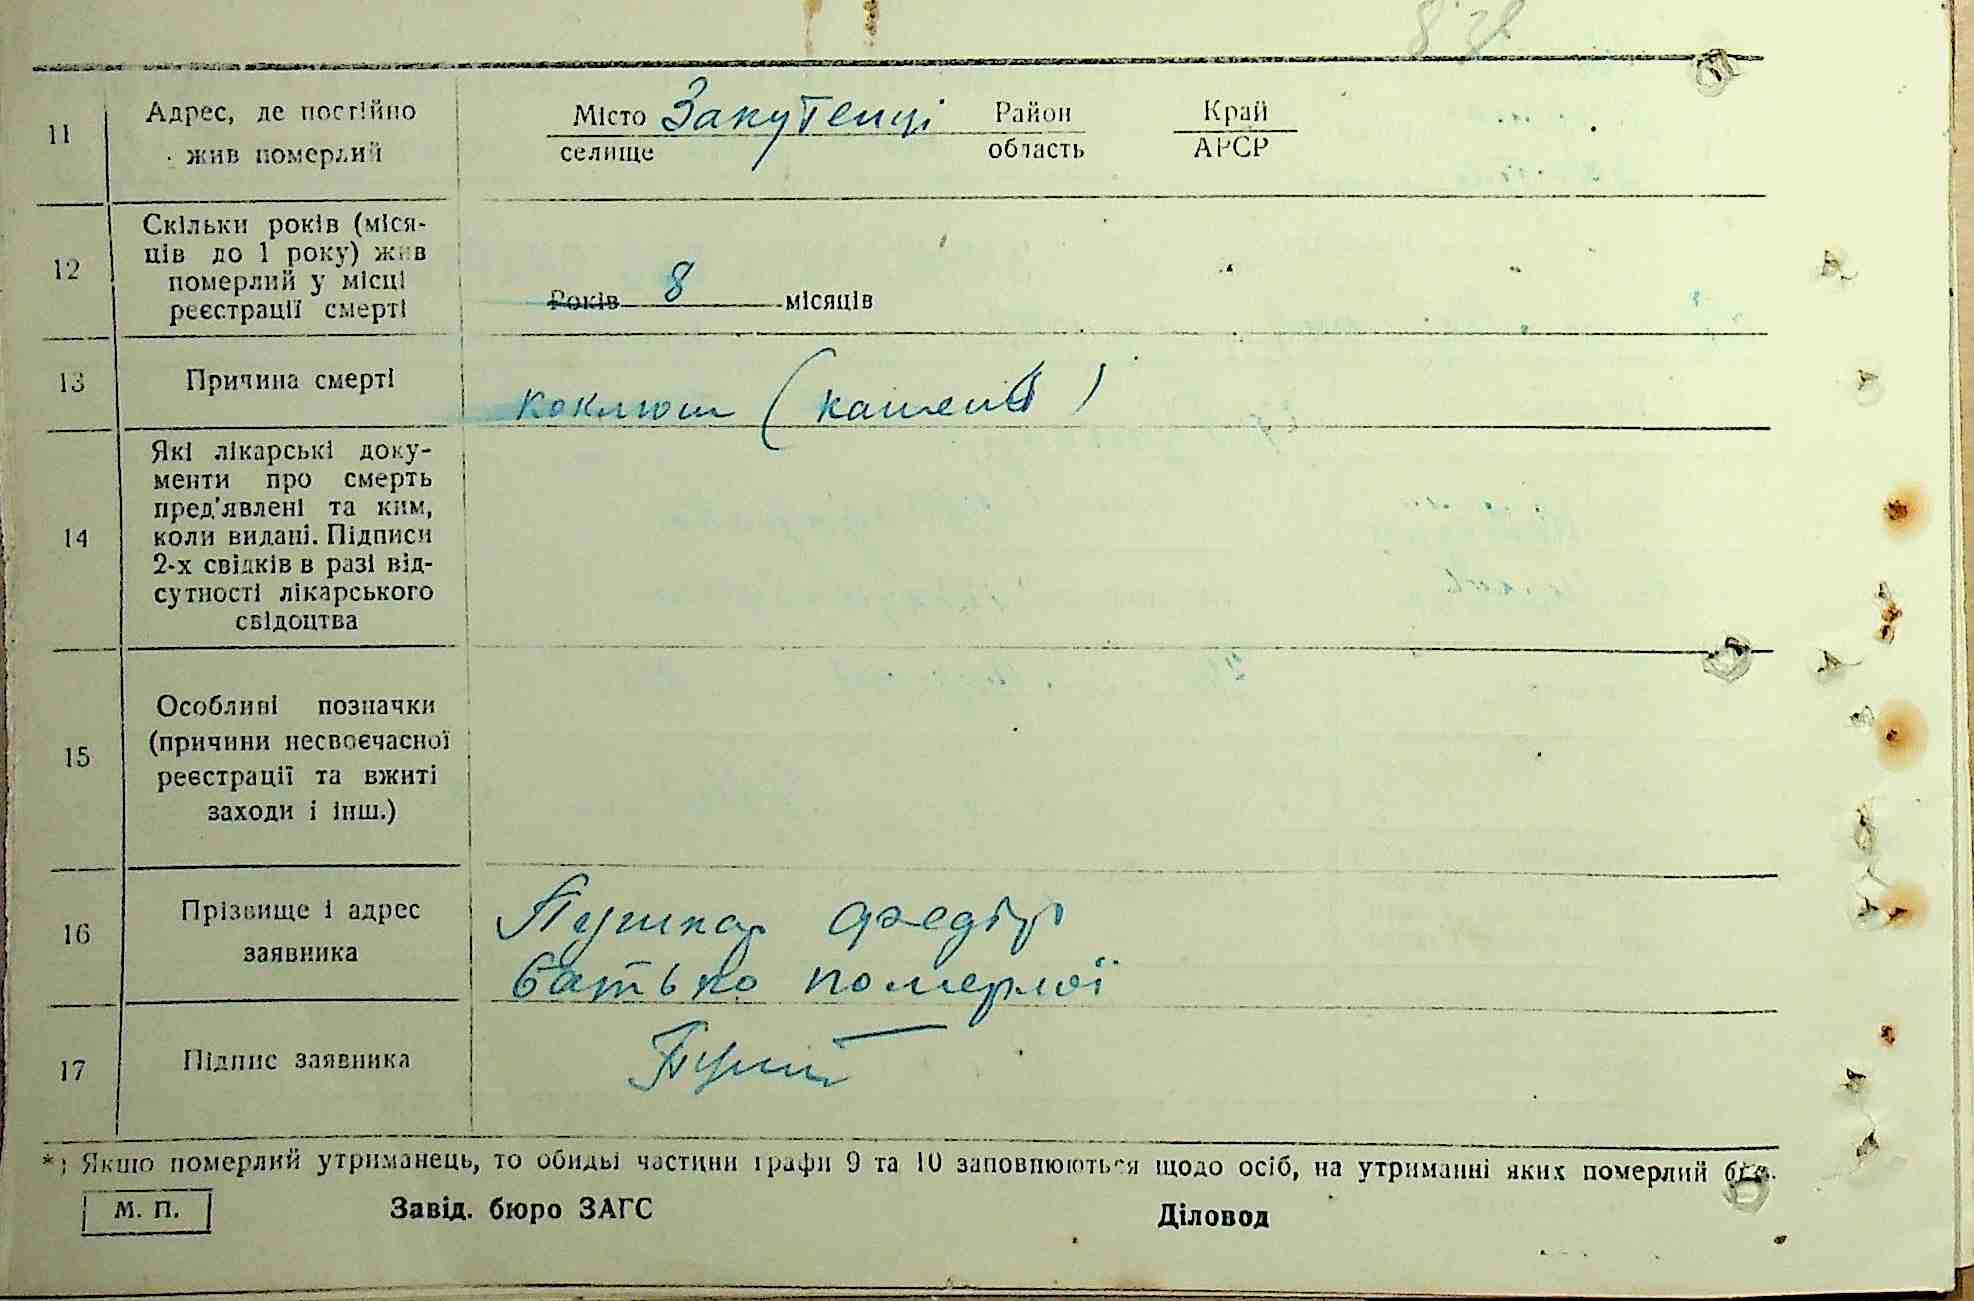 11
Адрес, де постійно
жив померлий
Місто Закутенці Район Край
селище область АРСР
12
Скільки років (міся-
ців до 1 року) жив
померлий у місці
реєстрації смерті
Років 8 місяців
13
Причина смерті
коклюш (кашель)
14
Які лікарські доку-
менти про смерть
пред'явлені та ким,
коли видані. Підписи
2-х свідків в разі від-
сутності лікарського
свідоцтва
15
Особливі позначки
(причини несвоєчасної
реєстрації та вжиті
заходи і інш.)
16
Прізвище і адрес
заявника
Пушкар Федір
батько померлої
17
Підпис заявника
*) Якшо померлий утриманець, то обидві частини графи 9 та 10 заповнюються щодо осіб, на утриманні яких померлий був.
М. П.
Завід. бюро ЗАГС
Діловод